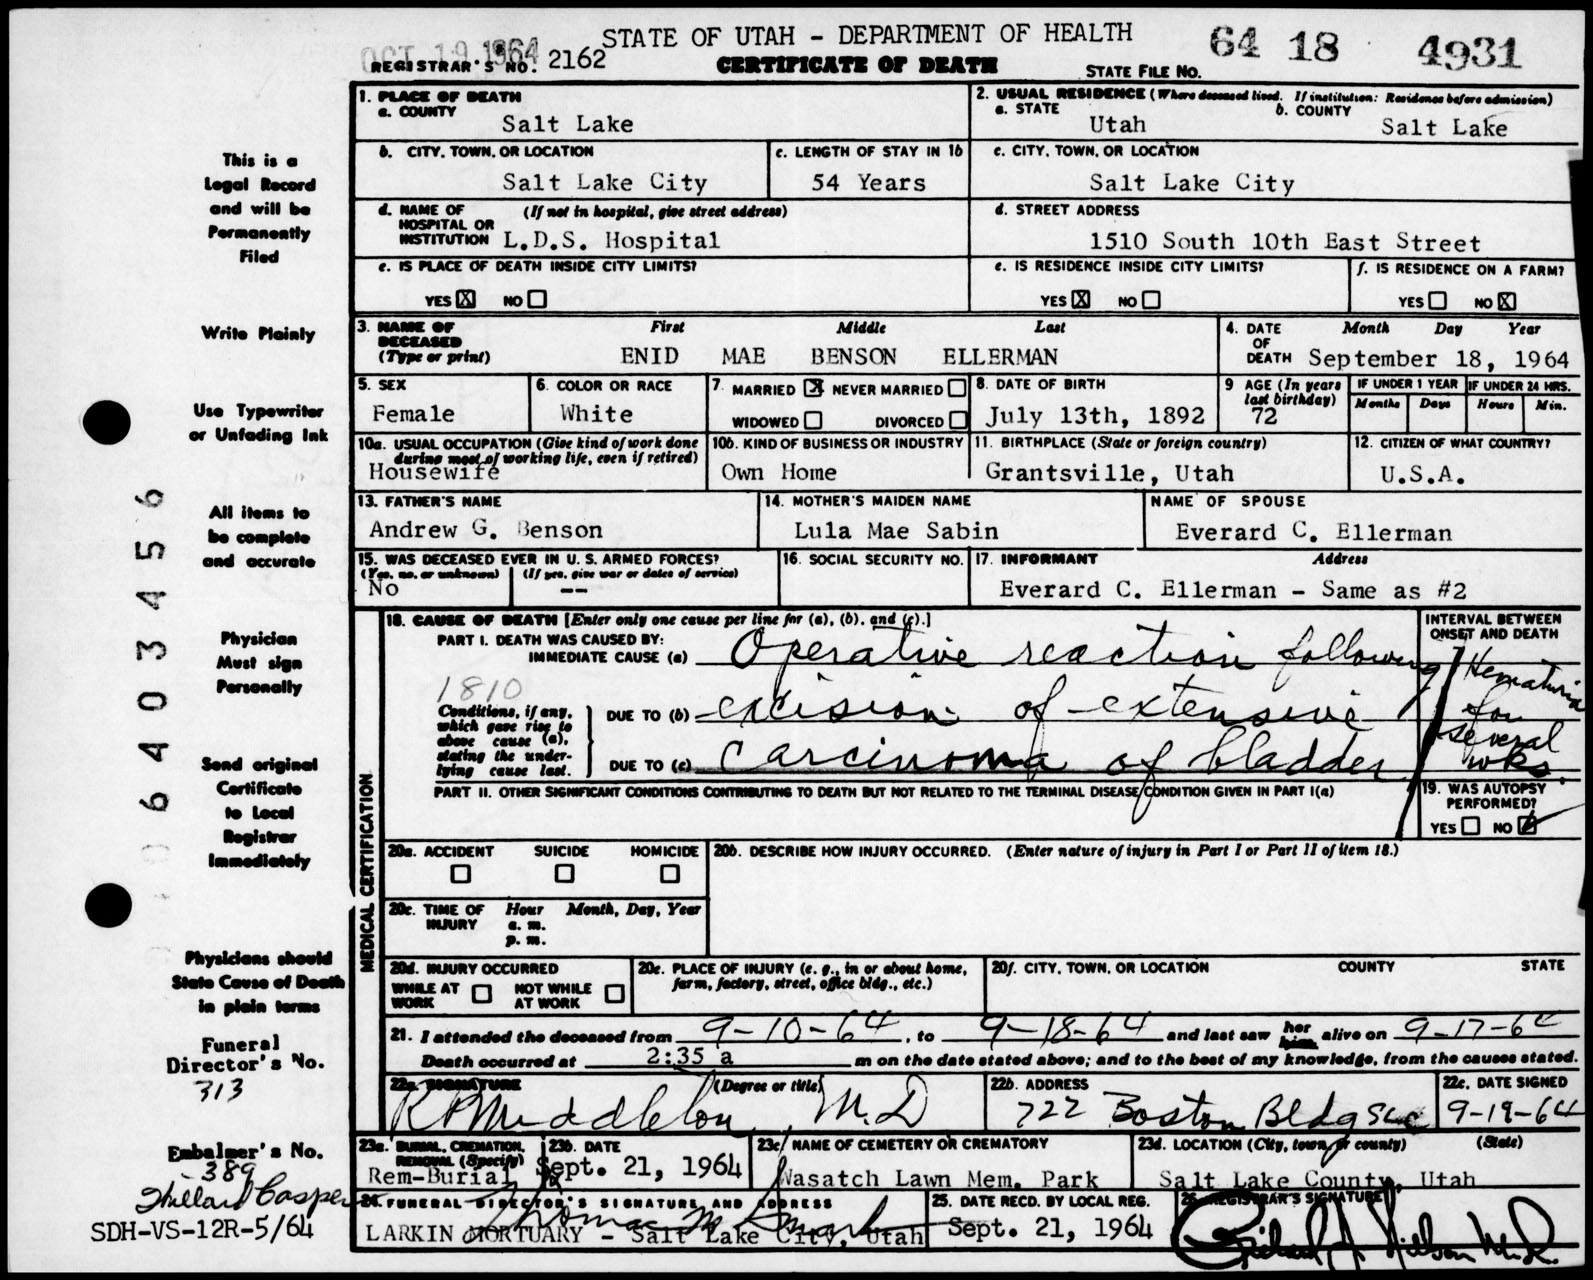 STATE OF UTAH - DEPARTMENT OF HEALTH
OCT 19 1964
REGISTRAR'S NO. 2162
CERTIFICATE OF DEATH
STATE FILE NO. 64 18 4931
This is a Legal Record and will be Permanently Filed
Write Plainly
Use Typewriter or Unfading Ink
All items to be complete and accurate
Physician Must sign Personally
Send original Certificate to Local Registrar Immediately
Physicians should State Cause of Death in plain terms
Funeral Director's No.
313
Embalmer's No.
389
Casper
SDH-VS-12R-5/64
06403456
1. PLACE OF DEATH
a. COUNTY
Salt Lake
2. USUAL RESIDENCE (Where deceased lived. If institution: Residence before admission)
a. STATE
Utah
b. COUNTY
Salt Lake
b. CITY, TOWN, OR LOCATION
Salt Lake City
c. LENGTH OF STAY IN 1b
54 Years
c. CITY, TOWN, OR LOCATION
Salt Lake City
d. NAME OF HOSPITAL OR INSTITUTION (If not in hospital, give street address)
L.D.S. Hospital
d. STREET ADDRESS
1510 South 10th East Street
e. IS PLACE OF DEATH INSIDE CITY LIMITS?
YES X NO
e. IS RESIDENCE INSIDE CITY LIMITS?
YES X NO
f. IS RESIDENCE ON A FARM?
YES NO X
3. NAME OF DECEASED (Type or print)
First Middle Last
ENID MAE BENSON ELLERMAN
4. DATE OF DEATH
Month Day Year
September 18, 1964
5. SEX
Female
6. COLOR OR RACE
White
7. MARRIED X NEVER MARRIED
WIDOWED DIVORCED
8. DATE OF BIRTH
July 13th, 1892
9 AGE (In years last birthday)
72
IF UNDER 1 YEAR
Months Days
IF UNDER 24 HRS.
Hours Min.
10a. USUAL OCCUPATION (Give kind of work done during most of working life, even if retired)
Housewife
10b. KIND OF BUSINESS OR INDUSTRY
Own Home
11. BIRTHPLACE (State or foreign country)
Grantsville, Utah
12. CITIZEN OF WHAT COUNTRY?
U.S.A.
13. FATHER'S NAME
Andrew G. Benson
14. MOTHER'S MAIDEN NAME
Lula Mae Sabin
NAME OF SPOUSE
Everard C. Ellerman
15. WAS DECEASED EVER IN U. S. ARMED FORCES?
(Yes, no, or unknown) (If yes, give war or dates of service)
No --
16. SOCIAL SECURITY NO.
17. INFORMANT Address
Everard C. Ellerman - Same as #2
MEDICAL CERTIFICATION
18. CAUSE OF DEATH [Enter only one cause per line for (a), (b), and (c).]
PART I. DEATH WAS CAUSED BY:
IMMEDIATE CAUSE (a) Operative reaction following
1810
Conditions, if any, which gave rise to above cause (a), stating the underlying cause last.
DUE TO (b) excision of extensive
DUE TO (c) carcinoma of bladder
INTERVAL BETWEEN ONSET AND DEATH
Hematuria
for
several
wks.
PART II. OTHER SIGNIFICANT CONDITIONS CONTRIBUTING TO DEATH BUT NOT RELATED TO THE TERMINAL DISEASE CONDITION GIVEN IN PART I(a)
19. WAS AUTOPSY PERFORMED?
YES NO
20a. ACCIDENT SUICIDE HOMICIDE
20b. DESCRIBE HOW INJURY OCCURRED. (Enter nature of injury in Part I or Part II of item 18.)
20c. TIME OF INJURY
Hour Month, Day, Year
a. m.
p. m.
20d. INJURY OCCURRED
WHILE AT WORK NOT WHILE AT WORK
20e. PLACE OF INJURY (e. g., in or about home, farm, factory, street, office bldg., etc.)
20f. CITY, TOWN, OR LOCATION COUNTY STATE
21. I attended the deceased from 9-10-64, to 9-18-64 and last saw her him alive on 9-17-64
Death occurred at 2:35 a m on the date stated above; and to the best of my knowledge, from the causes stated.
22a. SIGNATURE (Degree or title)
R P Middleton M.D
22b. ADDRESS
722 Boston Bldg SLC
22c. DATE SIGNED
9-19-64
23a. BURIAL, CREMATION, REMOVAL (Specify)
Rem-Burial
23b. DATE
Sept. 21, 1964
23c. NAME OF CEMETERY OR CREMATORY
Wasatch Lawn Mem. Park
23d. LOCATION (City, town, or county) (State)
Salt Lake County, Utah
24. FUNERAL DIRECTOR'S SIGNATURE AND ADDRESS
LARKIN MORTUARY - Salt Lake City, Utah
25. DATE RECD. BY LOCAL REG.
Sept. 21, 1964
26. REGISTRAR'S SIGNATURE